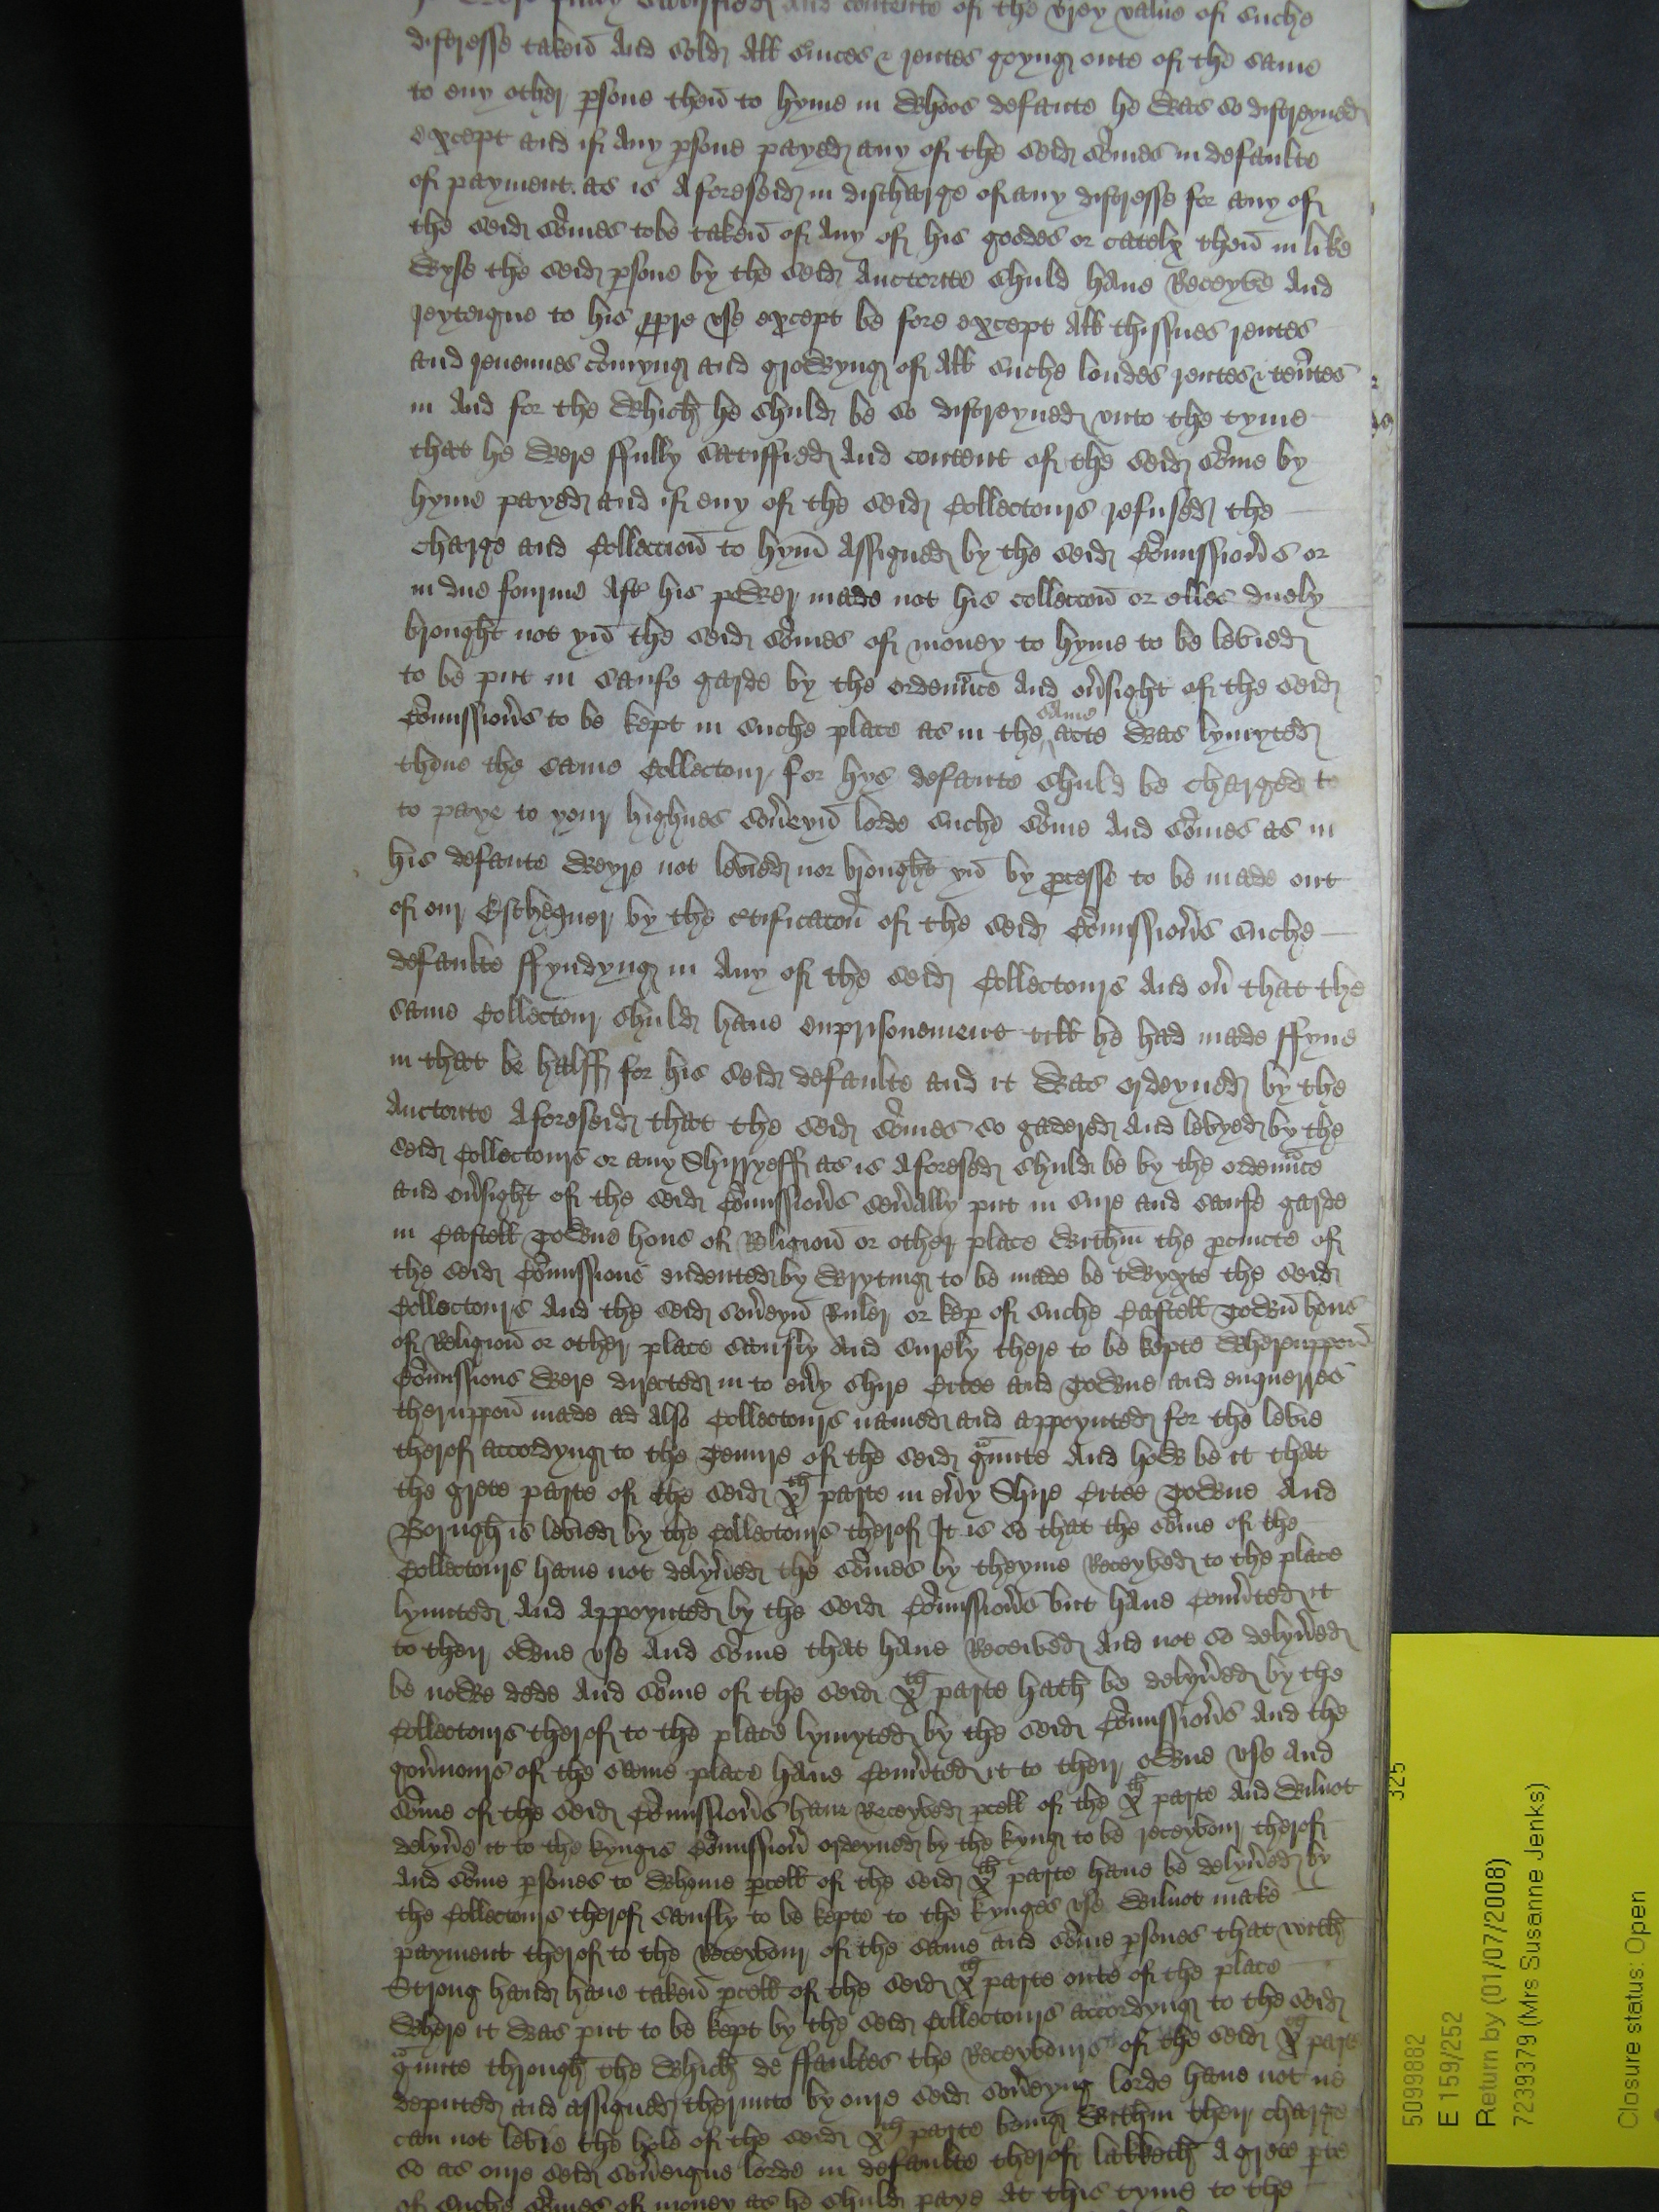 were fully satisfied and contente of the verey value of suche
distresse takeñ and sold All suices & rentes goyng oute of the same
to eny other psone theñ to hyme in whoos defaute he was so distreyned
except and if any psone payed any of the seid Sõmes in defaulte
of payment as is Aforeseid in discharge of any distresse for any of
the seid sõmes tobe takeñ of Any of his goodes or catelx theñ in like
wyse the seid psone by the seid Auctorite shuld haue Receyve And
reyteigne to his ppre vse except be fore except All thissues rentes
and reuenues cõmyng and growyng of All suche londes rentes & teñtes
in And for the which he shuld be so distreyned vnto the tyme
that he were ffully satisffied And content of the seid sõme by
hyme payed and if eny of the seid Collectours refused the
charge and Collecciouñ to hym̃ Assigned by the seid Cõmissioñs or
in due fourme Aft his power made not his colleccouñ or elles duely
brought not yñ the seid sõmes of money to hyme to be levied
to be put in saufe garde by the ordeñnce And oũsight of the seid
Cõmissioñs to be kept in suche place as in the same acte was lymyted
thene the same Collectour for hys defaute shuld be charged to
to paye to your highnes soũeyñ lorde suche sõme And sõmes as in
his defaute weyre not levied nor brought yñ by pcesse to be made out
of our Escheqner by the ctificacoñ of the seid Cõmissioñs suche
defaulte ffyndyng in Any of the seid Collectours And oũ that the
same Collectour shuld haue enprisonement till he had made ffyne
in that be halff for his seid defaulte and it was ordeyned by the
Auctorite Aforeseid that the seid sõmes so gadered And levyed by the
seid Collectours or any Shirryeff as is Aforesed shuld be by the ordeñnce
and oũsight of the seid Cõmissioñs seũally put in sure and saufe garde
in Castell towne hous of Religiouñ or other place withiñ the pcincte of
the seid Cõmissions endented by wryting to be made be twyxte the seid
Collectours And the seid soũeyñ Ruler or kep of suche Castell towñ hous
of Religiouñ or other place saufly And surely there to be kepte whereuppoñ
Cõmissions were directed in to eũy shire Citee and towne and enquerres
theruppoñ made ad Also Collectours named and appoynted for the levie
therof accordyng to the tenure of the seid gũnte And how be it that
the grete parte of the seid xth parte in eũy Shire Citee towne And
Borugh is levied by the Collectours therof It is so that the sõme of the
Collectours haue not delyũed the sõmes by theyme Receyved to the place
lymited And Appoynted by the seid Cõmissioñs but haue Comĩted it
to their owne vse And sõme that haue Received And not so delyũed
be nowe dede And sõme of the seid xth parte hath be delyũed by the
Collectours therof to the place lymyted by the seid Cõmissioñs And the
goũnours of the same place haue Comĩted it to their owne vse And
sõme of the seid Cõmissioñs haue Receyved pcell of the xth parte And wilnot
delyũe it to the kyngis Cõmissioñ ordeyned by the kyng to be receyvour therof
And sõme psones to whome pcell of the seid xth parte haue be delyũed by
the Collectours therof saufly to be kepte to the kynges vse wilnot make
payment therof to the Receyvour of the same and sõme psones that with
Strong hand haue takeñ pcell of the seid xth parte oute of the place
where it was put to be kept by the seid Collectours accordyng to the seid
gũnte through the which de ffaultes the Receyvours of the seid xth parte
deputed and assigned therunto by oure seid soũeyng lorde haue not ne
can not levie the hole of the seid xth parte being within their charge
so as oure seid soũeigne lorde in defaulte therof lakketh A grete pte
of suche sõmes of money as he shuld paye At this tyme to the
325
5099882
E 159/252
Return by (01/07/2008)
7239379 (Mrs Susanne Jenks)
Closure status: Open